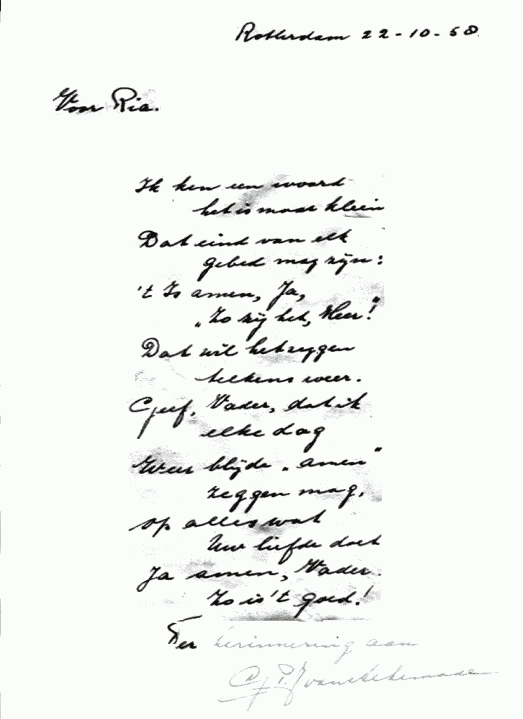 Rotterdam 22-10-58.
Voor Ria.
Ik ken een woord
het is maar klein
Dat eind van elk
gebed mag zijn:
't Is amen, Ja,
„Zo zij het, Heer!"
Dat wil het zeggen
telkens weer.
Geef, Vader, dat ik
elke dag
Weer blijde „amen"
zeggen mag,
op alles wat
Uw liefde doet
Ja amen, Vader.
Zo is 't goed!
Ter herinnering aan